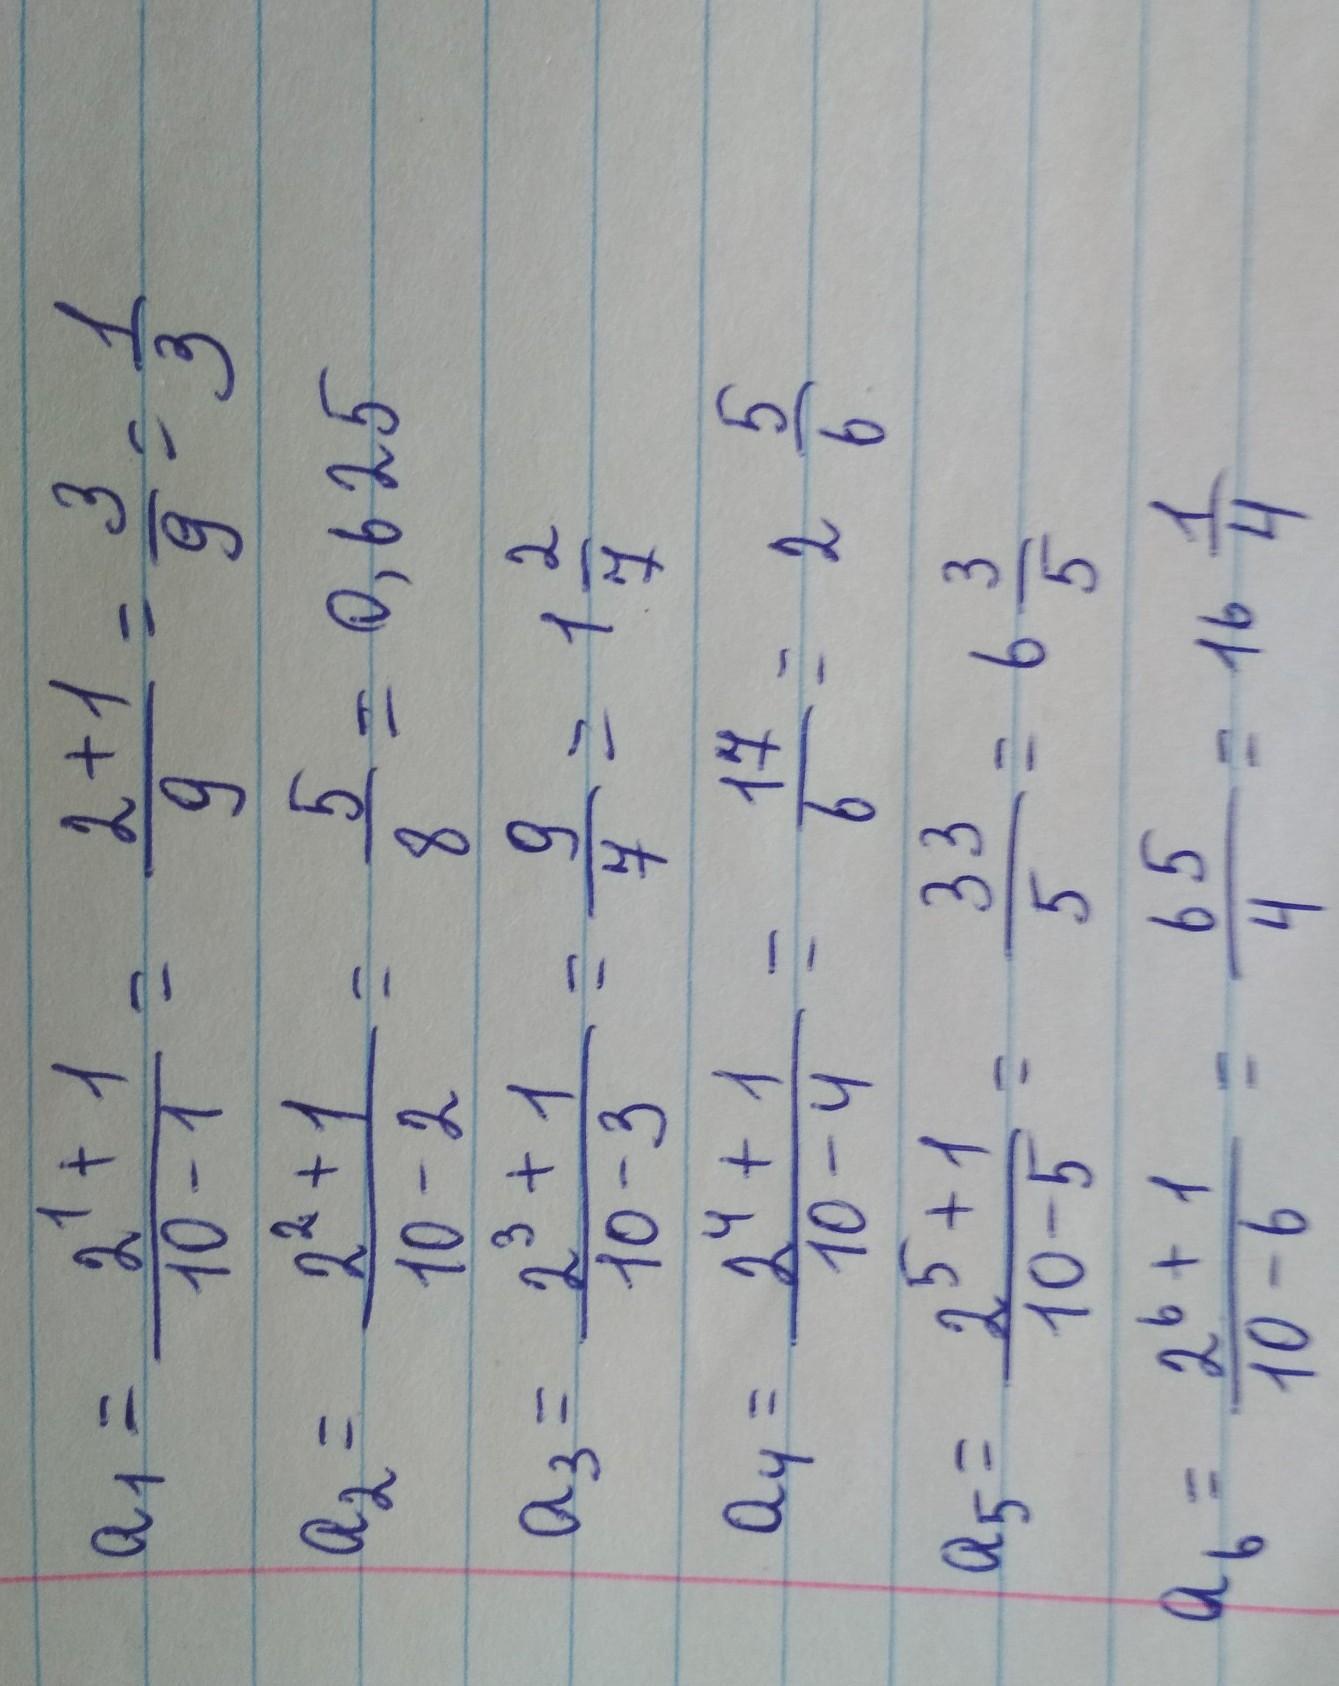 a₁ = (2¹ + 1)/(10 - 1) = (2 + 1)/9 = 3/9 = 1/3
a₂ = (2² + 1)/(10 - 2) = 5/8 = 0,625
a₃ = (2³ + 1)/(10 - 3) = 9/7 = 1 2/7
a₄ = (2⁴ + 1)/(10 - 4) = 17/6 = 2 5/6
a₅ = (2⁵ + 1)/(10 - 5) = 33/5 = 6 3/5
a₆ = (2⁶ + 1)/(10 - 6) = 65/4 = 16 1/4